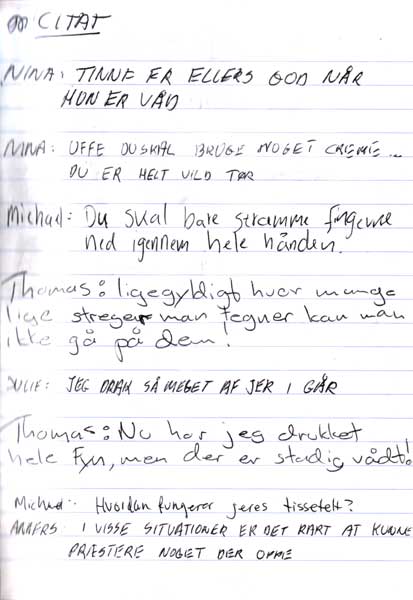 CITAT
NINA: TINNE ER ELLERS GOD NÅR
HUN ER VÅD
NINA: UFFE DU SKAL BRUGE NOGET CREME...
DU ER HELT VILD TØR
Michael: Du skal bare stramme fingrene
ned igennem hele hånden.
Thomas: ligegyldigt hvor mange
lige streger man tegner kan man
ikke gå på dem!
JULIE: JEG DRAK SÅ MEGET AF JER I GÅR
Thomas: Nu har jeg drukket
hele Fyn, men der er stadig vådt!
Michael: Hvordan fungerer jeres tissetelt?
ANDERS: I VISSE SITUATIONER ER DET RART AT KUNNE
PRÆSTERE NOGET DER OPPE